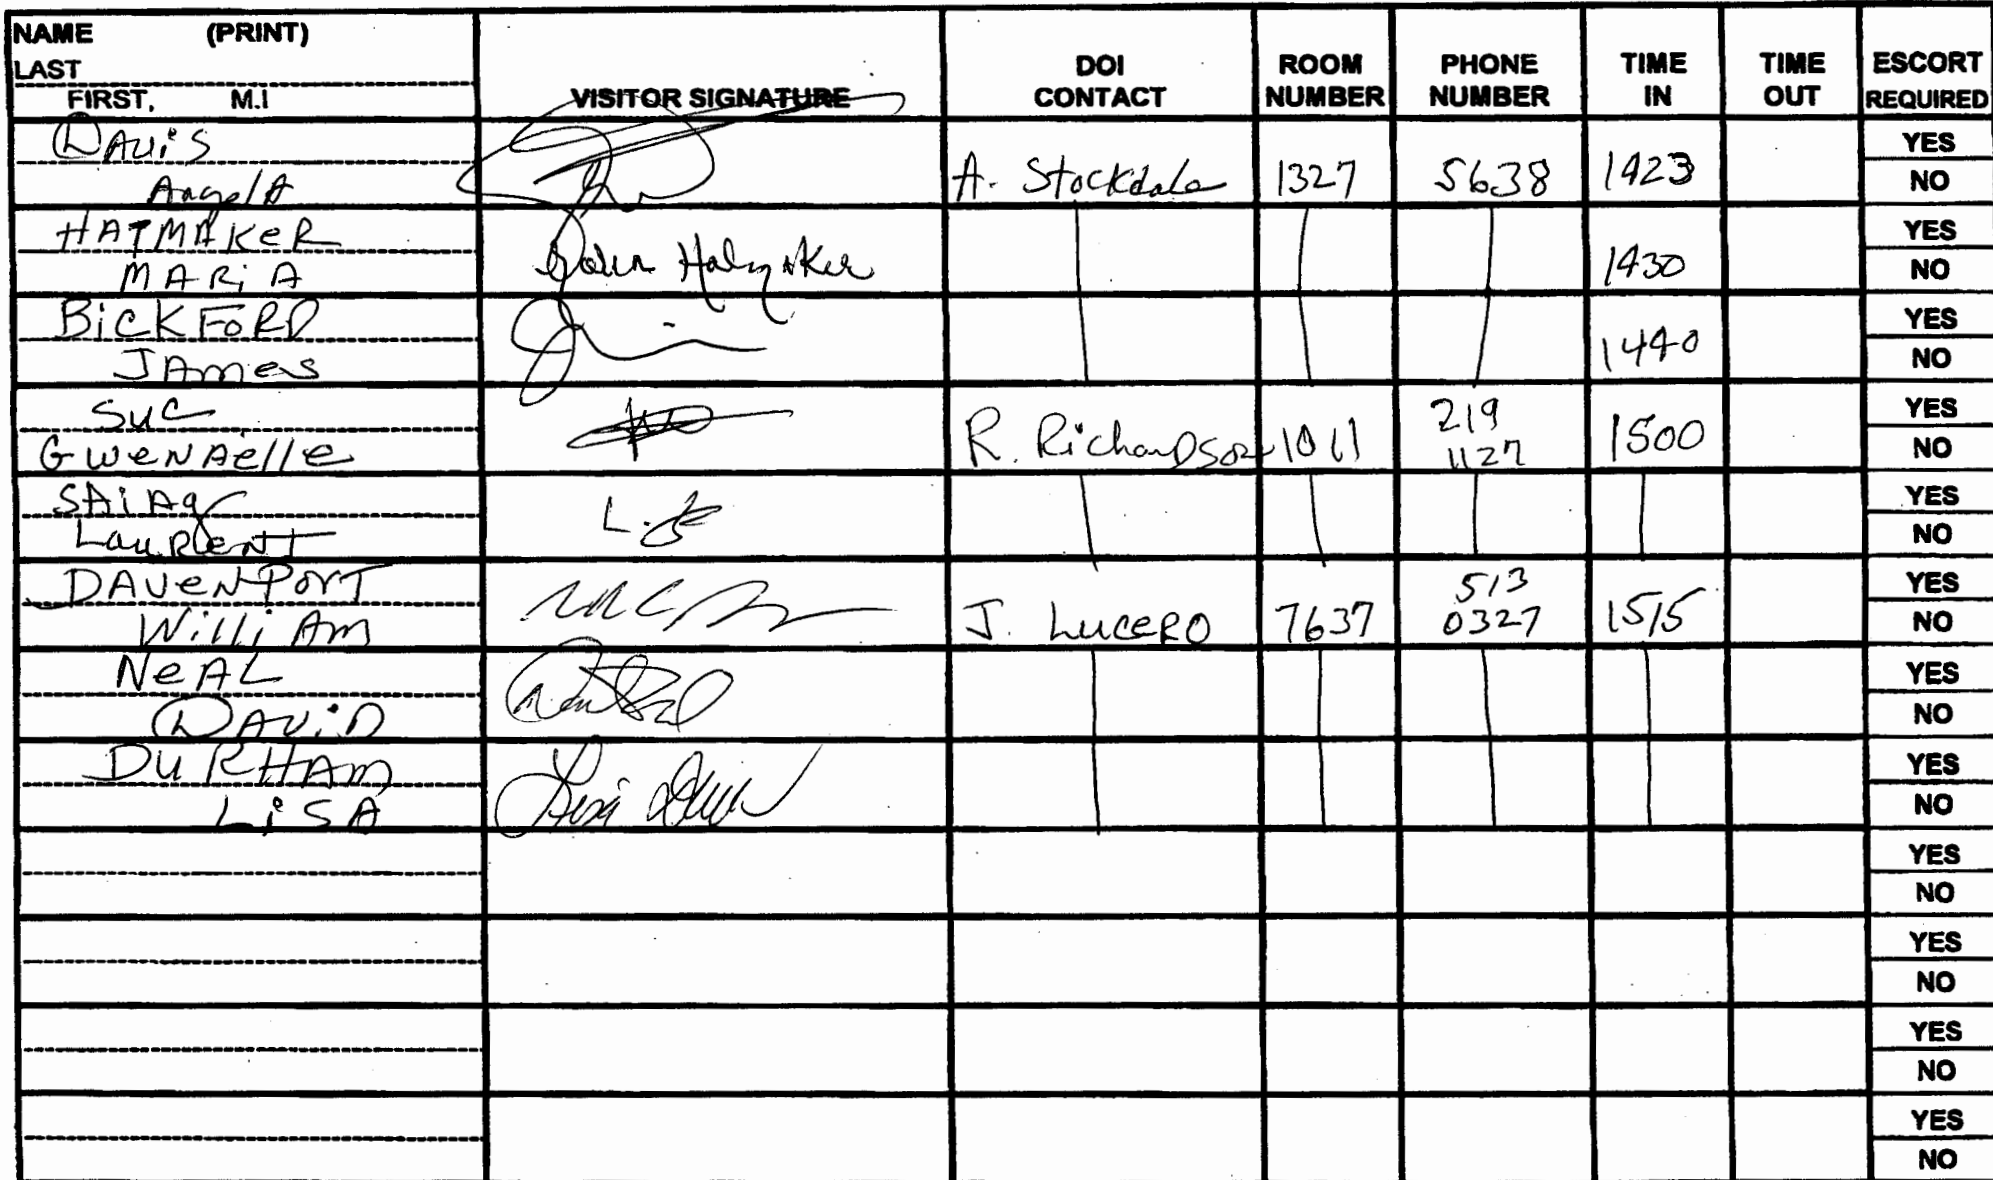 NAME (PRINT)
LAST
FIRST, M.I
VISITOR SIGNATURE
DOI CONTACT
ROOM NUMBER
PHONE NUMBER
TIME IN
TIME OUT
ESCORT REQUIRED
DAVIS
AngelA
A. Stockdale 1327 5638 1423
YES
NO
HATMAKeR
MARiA
1430
YES
NO
BiCKFoRD
JAmes
1440
YES
NO
Suc
GweNAelle
R. Richardson 1011 219 1127 1500
YES
NO
SAiAg
LauRent
L.
YES
NO
DAVeNPorT
WilliAm
J. LuceRO 7637 513 0327 1515
YES
NO
NeAL
DAViD
YES
NO
DuRHAm
LiSA
YES
NO
YES
NO
YES
NO
YES
NO
YES
NO